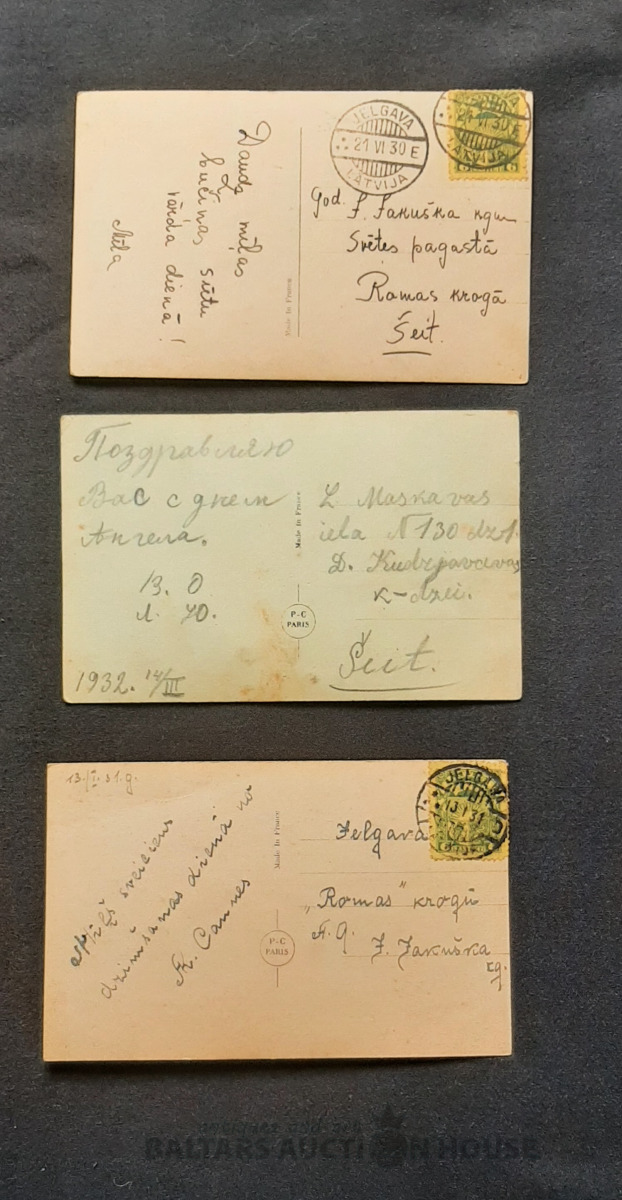 Daudz mīļas
bučiņas sūtu
vārda dienā!
Mīla
Made in France
JELGAVA
21 VI 30 E
LATVIJA
21 VI 30 E
LATVIJA
God. J. Jakuška kgm
Svētes pagastā
Romas krogā
Šeit.
Поздравляю
Вас с днем
Ангела.
В. О
Л. Ю.
1932. 14/III
Made in France
P-C
PARIS
L Maskavas
iela N 130 dz
D.
k-dzei.
Šeit.
13./I. 31.g.
sveiciens
dzimšanas dienā no
Cannes
Made in France
P-C
PARIS
JELGAVA
13 I 31
Jelgavā
„Romas" krogū
A. G. J. Jakuška
kg.
antiques and art
BALTARS AUCTION HOUSE